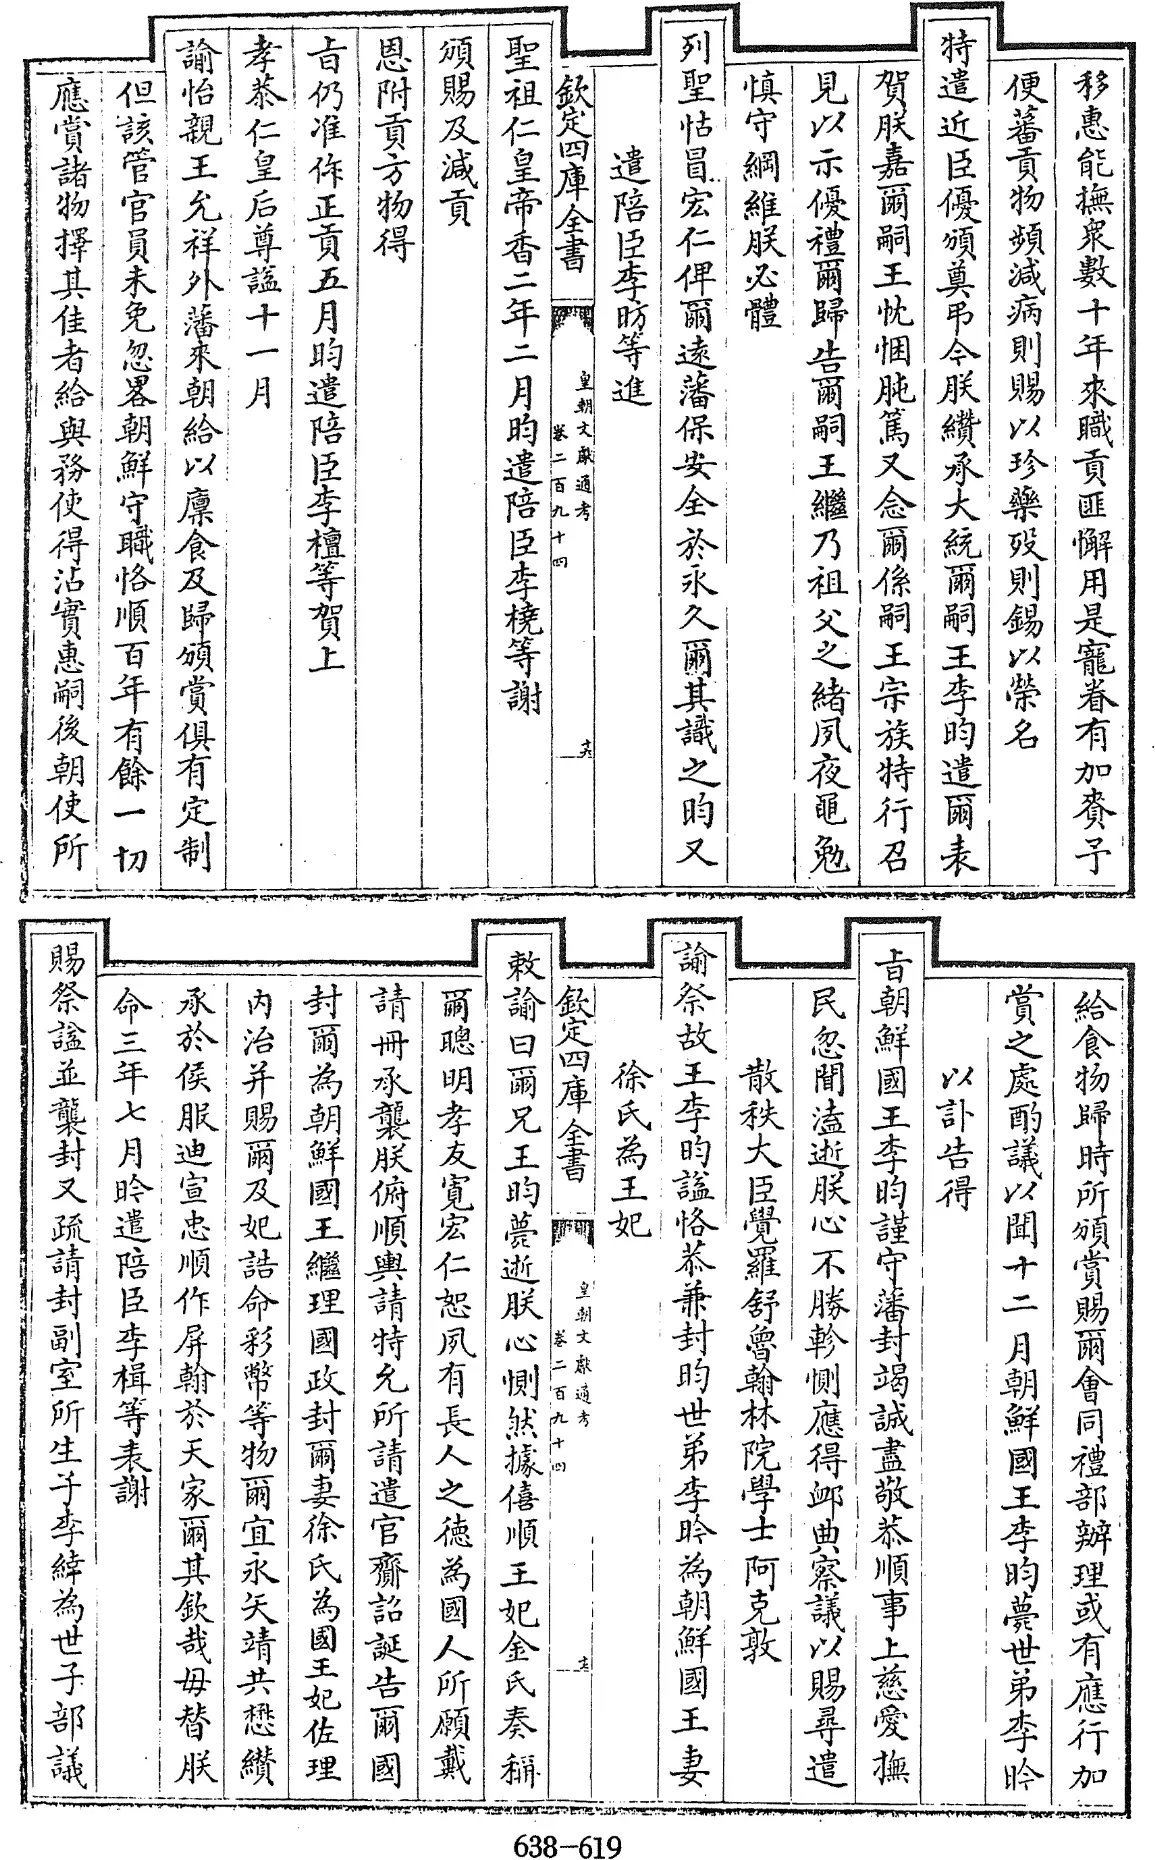 移惠能撫衆數十年來職貢匪懈用是寵眷有加賚予
便蕃貢物頻減病則賜以珍藥殁則錫以榮名
特遣近臣優頒奠弔今朕纘承大統爾嗣王李昀遣爾表
賀朕嘉爾嗣王忱悃肫篤又念爾係嗣王宗族特行召
見以示優禮爾歸告爾嗣王繼乃祖父之緒夙夜黽勉
慎守綱維朕必體
列聖怙冒宏仁俾爾遠藩保安全於永久爾其識之昀又
遣陪臣李昉等進
欽定四庫全書
皇朝文獻通考
卷二百九十四
十六
聖祖仁皇帝香二年二月昀遣陪臣李橈等謝
頒賜及減貢
恩附貢方物得
旨仍准作正貢五月昀遣陪臣李檀等賀上
孝恭仁皇后尊諡十一月
諭怡親王允祥外藩來朝給以廪食及歸頒賞俱有定制
但該管官員未免忽畧朝鮮守職恪順百年有餘一切
應賞諸物擇其佳者給與務使得沾實惠嗣後朝使所
給食物歸時所頒賞賜爾會同禮部辦理或有應行加
賞之處酌議以聞十二月朝鮮國王李昀薨世弟李昑
以訃告得
旨朝鮮國王李昀謹守藩封竭誠盡敬恭順事上慈愛撫
民忽聞溘逝朕心不勝軫惻應得䘏典察議以賜尋遣
散秩大臣覺羅舒魯翰林院學士阿克敦
諭祭故王李昀諡恪恭兼封昀世弟李昑為朝鮮國王妻
徐氏為王妃
欽定四庫全書
皇朝文獻通考
卷二百九十四
十七
敕諭曰爾兄王昀薨逝朕心惻然據僖順王妃金氏奏稱
爾聰明孝友寛宏仁恕夙有長人之德為國人所願戴
請冊承襲朕俯順輿請特允所請遣官齎詔誕告爾國
封爾為朝鮮國王繼理國政封爾妻徐氏為國王妃佐理
内治并賜爾及妃誥命彩幣等物爾宜永矢靖共懋纘
承於侯服迪宣忠順作屏翰於天家爾其欽哉毋替朕
命三年七月昑遣陪臣李楫等表謝
賜祭諡並襲封又疏請封副室所生子李緈為世子部議
638-619